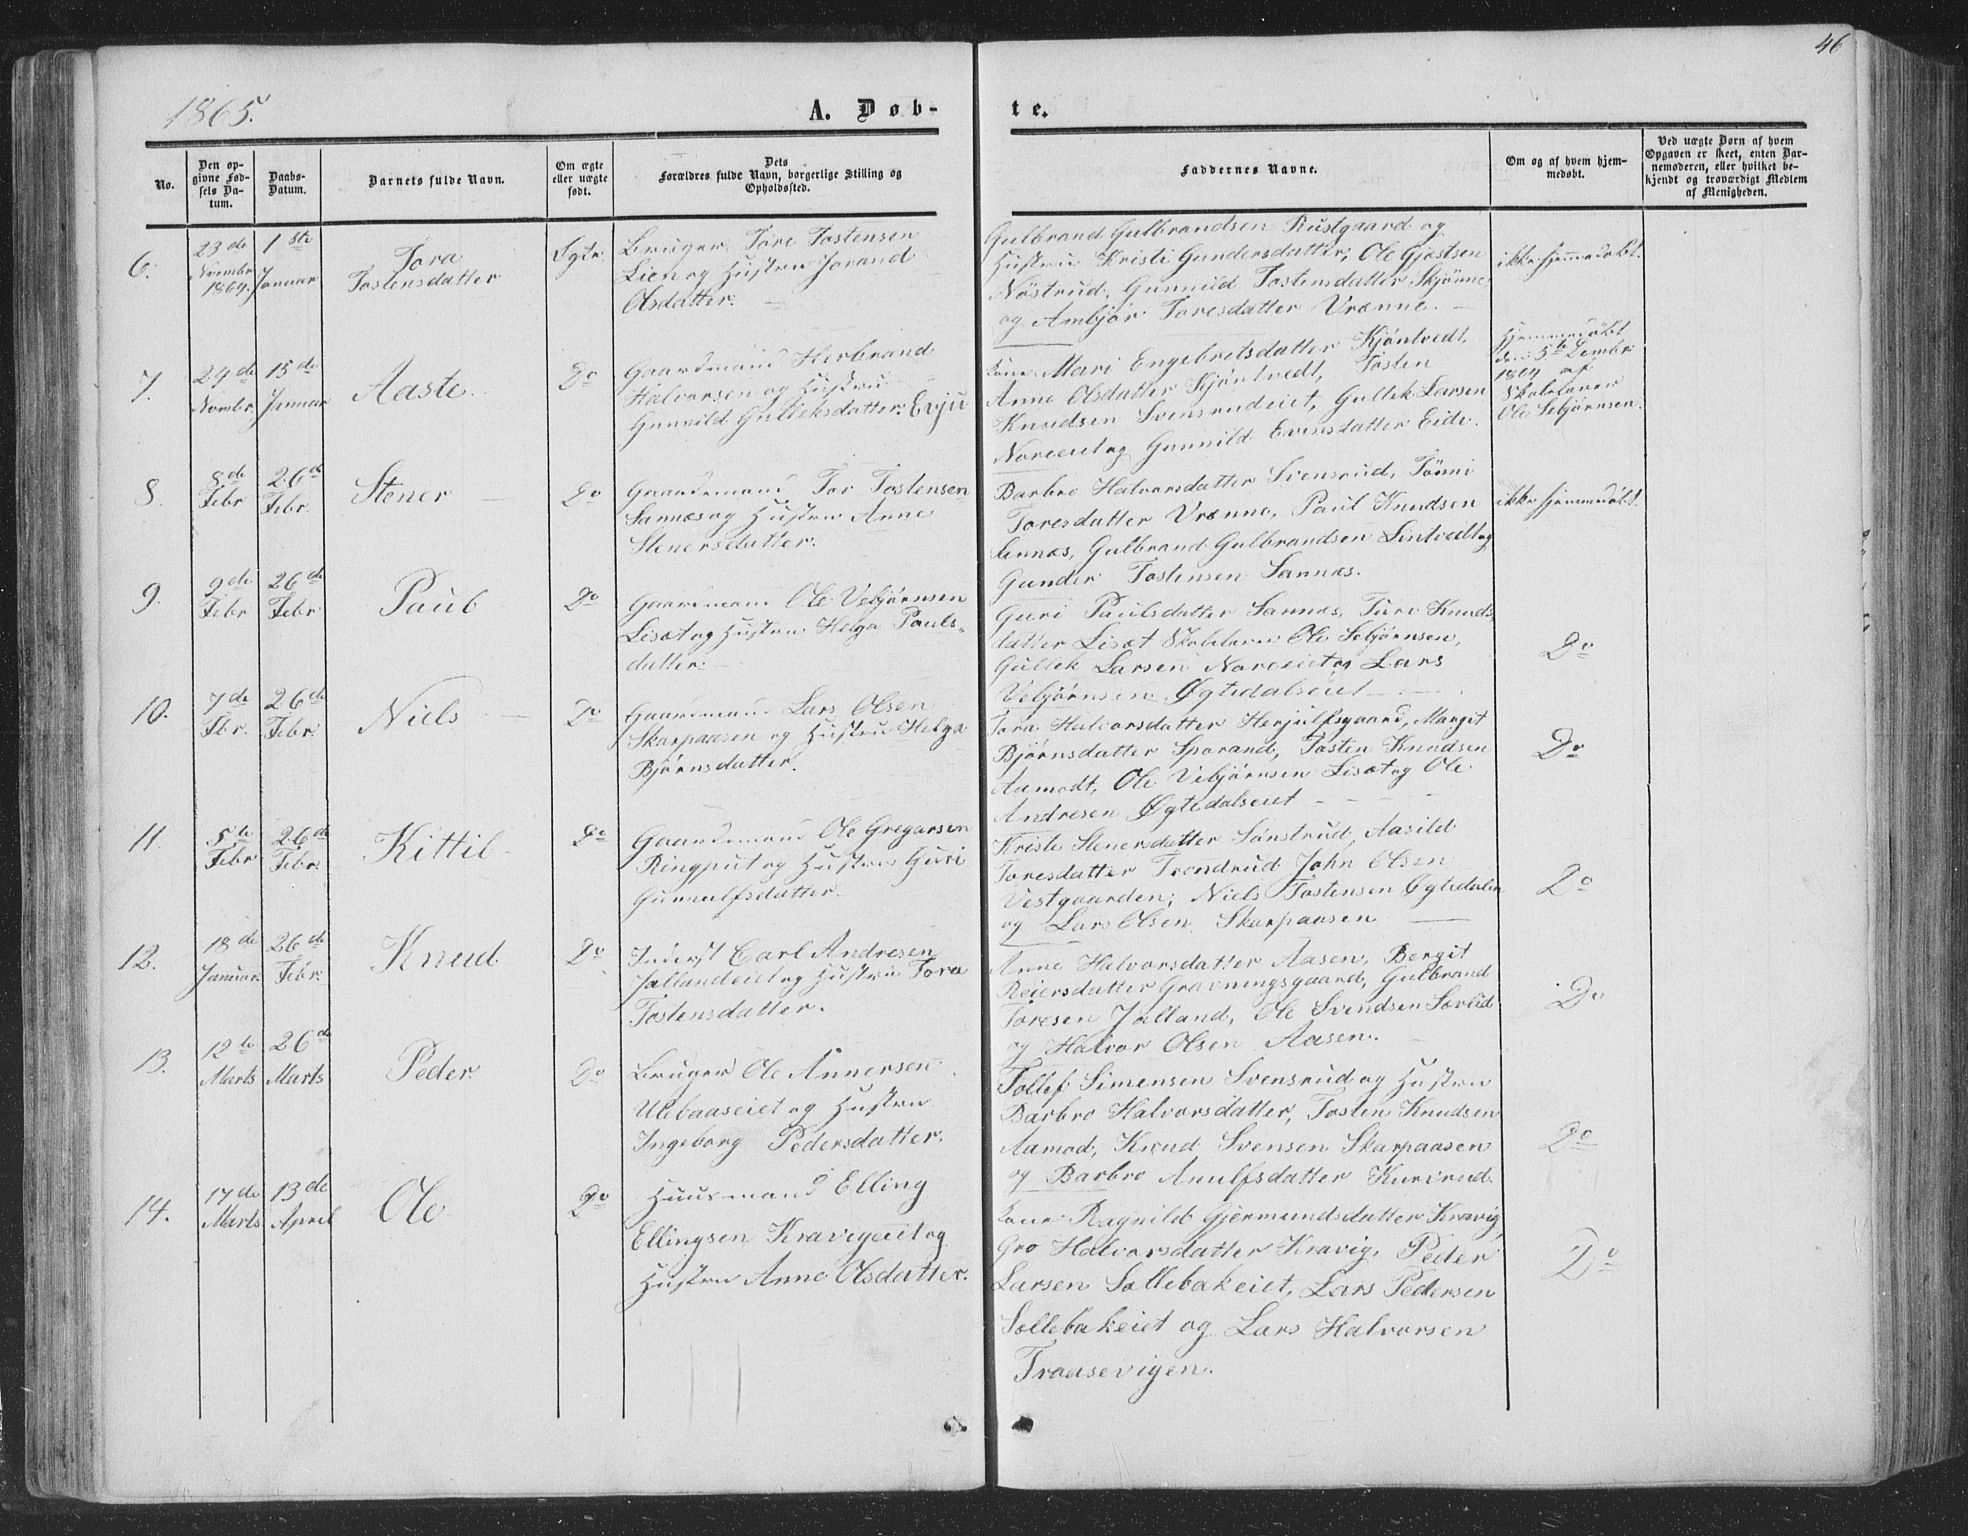 46
1865.
A. Døb-
te.
No.
Den op-
givne Fød-
sels Da-
tum.
Daabs-
Datum.
Barnets fulde Navn.
Om ægte
eller uægte
født.
Dets
Forældres fulde Navn, borgerlige Stilling og
Opholdssted.
Faddernes Navne.
Om og af hvem hjem-
medøbt.
Ved uægte Børn af hvem
Opgaven er skeet, enten Bar-
nemoderen, eller hvilket be-
kjendt og troværdigt Medlem
af Menigheden.
6.
23de
Novembr
1864.
1ste
Januar
Tora
Tostensdatter
Ægte.
Bruger Tore Tostensen
Lien og Hustru Jorand
Olsdatter.
Gulbrand Gulbrandsen Rustgaard og
Hustru Kristi Gundersdatter, Ole Gjestsen
Nøstrud, Gunnild Tostensdatter Skjønne
og Ambjør Toresdatter Vrænne.
ikke hjemmedøbt.
7.
29de
Novmbr
15de
Januar
Aaste.
Do
Gaardmand Herbrand
Halvorsen og Hustru
Gunnild Gulleksdatter. Evju
Kone Mari Engebretsdatter Kjøntvedt,
Anne Olsdatter Kjøntvedt, Tosten
Knudsen Svensrudeiet, Gullek Larsen
Noreeiet og Gunnild Evensdatter Eide.
Hjemmedøbt
den 5te Dembr
1864 af
Skolelærer
Ole Sebjørnsen.
8.
8de
Febr
26de
Febr.
Stener
Do
Gaardmand Tor Tostensen
Sannes og Hustru Anne
Stenersdatter.
Barbro Halvorsdatter Svensrud, Tønni
Toresdatter Vrænne, Paul Knudsen
Sennæs, Gulbrand Gulbrandsen Lintvedt og
Gunder Tostensen Sannæs.
ikke hjemmedøbt.
9.
9de
Febr
26de
Febr.
Paul
Do
Gaardmand Ole Vebjørnsen
Liset og Hustru Helga Pauls-
datter.
Guri Paulsdatter Sannæs, Turi Knuds
datter Liset Skolelærer Ole Sebjørnsen,
Gullek Larsen Noreeiet og Lars
Vebjørnsen Øgtedalseiet
Do
10.
7de
Fbr.
26de
Febr.
Niels
Do
Gaardmand Lars Olsen
Skarpaasen og Hustru Helga
Bjørnsdatter.
Tora Halvorsdatter Herjulfsgaard, Margit
Bjørnsdatter Sporand, Tosten Knudsen
Aamodt, Ole Vebjørnsen Liset og Ole
Andresen Øgtedalseiet
Do
11.
5te
Febr
26de
Febr.
Kittil
Do
Gaardmand Ole Gregarsen
Ringput og Hustru Guri
Gunnulfsdatter.
Kristi Stenersdatter Sønstrud, Aasild
Toresdatter Trondrud John Olsen
Vestgaarden; Niels Tostensen Øgtedalen
og Lars Olsen Skarpaasen
Do
12.
18de
Januar.
26de
Febr.
Knud
Do
Inderst Carl Andresen
Jallandeiet og Hustru Tora
Tostensdatter.
Anne Halvorsdatter Aasen, Bergit
Reiersdatter Gravningsgaard, Gulbrand
Toresen Jalland, Ole Svendsen Sovlid
og Halvor Olsen Aasen.
Do
13.
12te
Marts
26de
Marts
Peder
Do
Bruger Ole Annersen
Ulebaaseiet og Hustru
Ingeborg Pedersdatter.
Tollef Simensen Svensrud og Hustru
Barbro Halvorsdatter, Tosten Knudsen
Aamod, Knud Svensen Skarpaasen
og Barbro Anulfsdatter Kurvrud.
Do
14.
17de
Marts
13de
April
Ole
Do
Huusmand Elling
Ellingsen Kravigeiet og
Hustru Anne Olsdatter.
Kone Ragnild Gjermundsdatter Kravig,
Gro Halvorsdatter Kravig, Peder
Larsen Sollebakeiet, Lars Pedersen
Sollebakeiet og Lars Halvorsen
Traasevigen.
Do